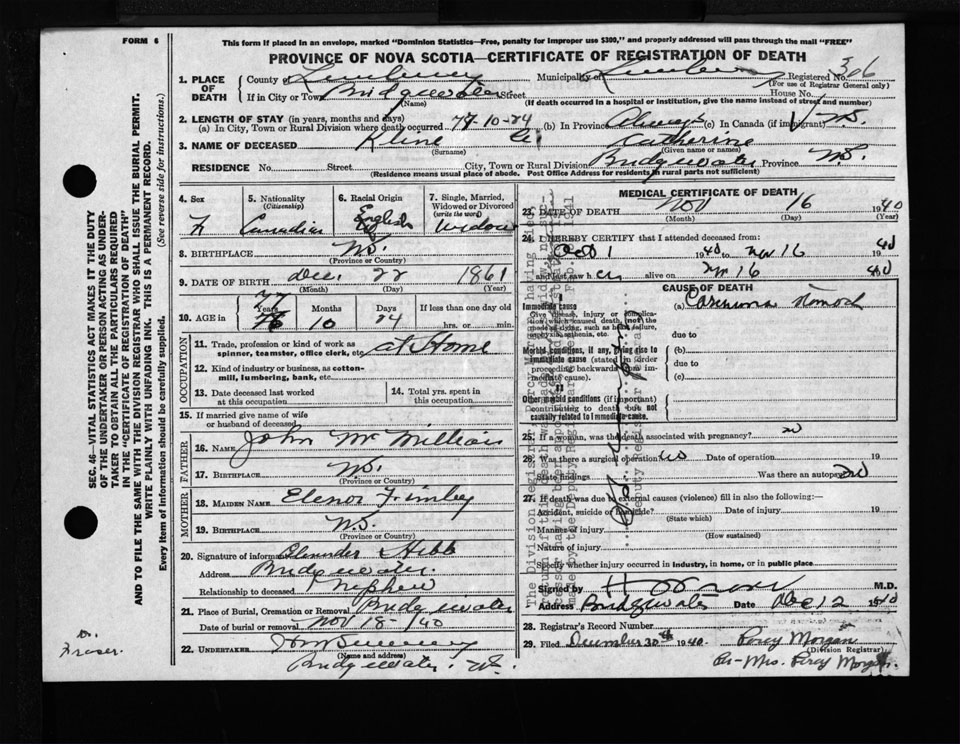 FORM 6
This form if placed in an envelope, marked "Dominion Statistics—Free, penalty for improper use $300," and properly addressed will pass through the mail "FREE"
PROVINCE OF NOVA SCOTIA—CERTIFICATE OF REGISTRATION OF DEATH
1. PLACE OF DEATH County of Lunenburg Municipality of Lunenburg Registered No. 306
(For use of Registrar General only)
If in City or Town Bridgewater Street House No.
(Name) (If death occurred in a hospital or institution, give the name instead of street and number)
2. LENGTH OF STAY (in years, months and days)
(a) In City, Town or Rural Division where death occurred 77-10-24 (b) In Province Always (c) In Canada (if immigrant) N.S.
3. NAME OF DECEASED Kline Catherine
(Surname) (Given name or names)
RESIDENCE No. Street City, Town or Rural Division Bridgewater Province N.S.
(Residence means usual place of abode. Post Office Address for residents in rural parts not sufficient)
4. Sex F
5. Nationality (Citizenship) Canadian
6. Racial Origin English
7. Single, Married, Widowed or Divorced (write the word) Widow
8. BIRTHPLACE N.S.
(Province or Country)
9. DATE OF BIRTH Dec. 22 1861
(Month) (Day) (Year)
10. AGE in Years 77 Months 10 Days 24 If less than one day old hrs. or min.
OCCUPATION
11. Trade, profession or kind of work as spinner, teamster, office clerk, etc. at Home
12. Kind of industry or business, as cotton-mill, lumbering, bank, etc.
13. Date deceased last worked at this occupation
14. Total yrs. spent in this occupation
15. If married give name of wife or husband of deceased
FATHER
16. NAME John McMillian
17. BIRTHPLACE N.S.
(Province or Country)
MOTHER
18. MAIDEN NAME Elenor
19. BIRTHPLACE N.S.
(Province or Country)
20. Signature of informant Hebb
Address Bridgewater
Relationship to deceased Nephew
21. Place of Burial, Cremation or Removal Bridgewater
Date of burial or removal Nov 18-/40
22. UNDERTAKER
(Name and address)
Bridgewater. N.S.
MEDICAL CERTIFICATE OF DEATH
23. DATE OF DEATH Nov 16 1940
(Month) (Day) (Year)
24. I HEREBY CERTIFY that I attended deceased from:
Oct 1 1940 to Nov 16 40
and last saw her alive on Nov 16 40
CAUSE OF DEATH
Immediate cause (a) Carcinoma stomach
Give disease, injury or complication which caused death, not the mode of dying, such as heart failure, asphyxia, asthenia, etc.
due to
Morbid conditions, if any, giving rise to immediate cause (stated in order proceeding backwards from immediate cause).
(b)
due to
(c)
Other morbid conditions (if important) contributing to death but not causally related to immediate cause.
25. If a woman, was the death associated with pregnancy? no
26. Was there a surgical operation no Date of operation
State findings Was there an autopsy? no
27. If death was due to external causes (violence) fill in also the following:—
Accident, suicide or homicide? Date of injury 19
(State which)
Manner of injury
(How sustained)
Nature of injury
Specify whether injury occurred in industry, in home, or in public place
Signed by M.D.
Address Bridgewater Date Dec 12 1940
28. Registrar's Record Number
29. Filed December 30th 1940. Percy Morgan
(Division Registrar)
Per-Mrs. Percy Morgan.
SEC. 46—VITAL STATISTICS ACT MAKES IT THE DUTY OF THE UNDERTAKER OR PERSON ACTING AS UNDERTAKER TO OBTAIN ALL THE PARTICULARS REQUIRED IN THE "CERTIFICATE OF REGISTRATION OF DEATH" AND TO FILE THE SAME WITH THE DIVISION REGISTRAR WHO SHALL ISSUE THE BURIAL PERMIT.
WRITE PLAINLY WITH UNFADING INK. THIS IS A PERMANENT RECORD.
Every item of information should be carefully supplied. (See reverse side for instructions.)
Dr.
Fraser.